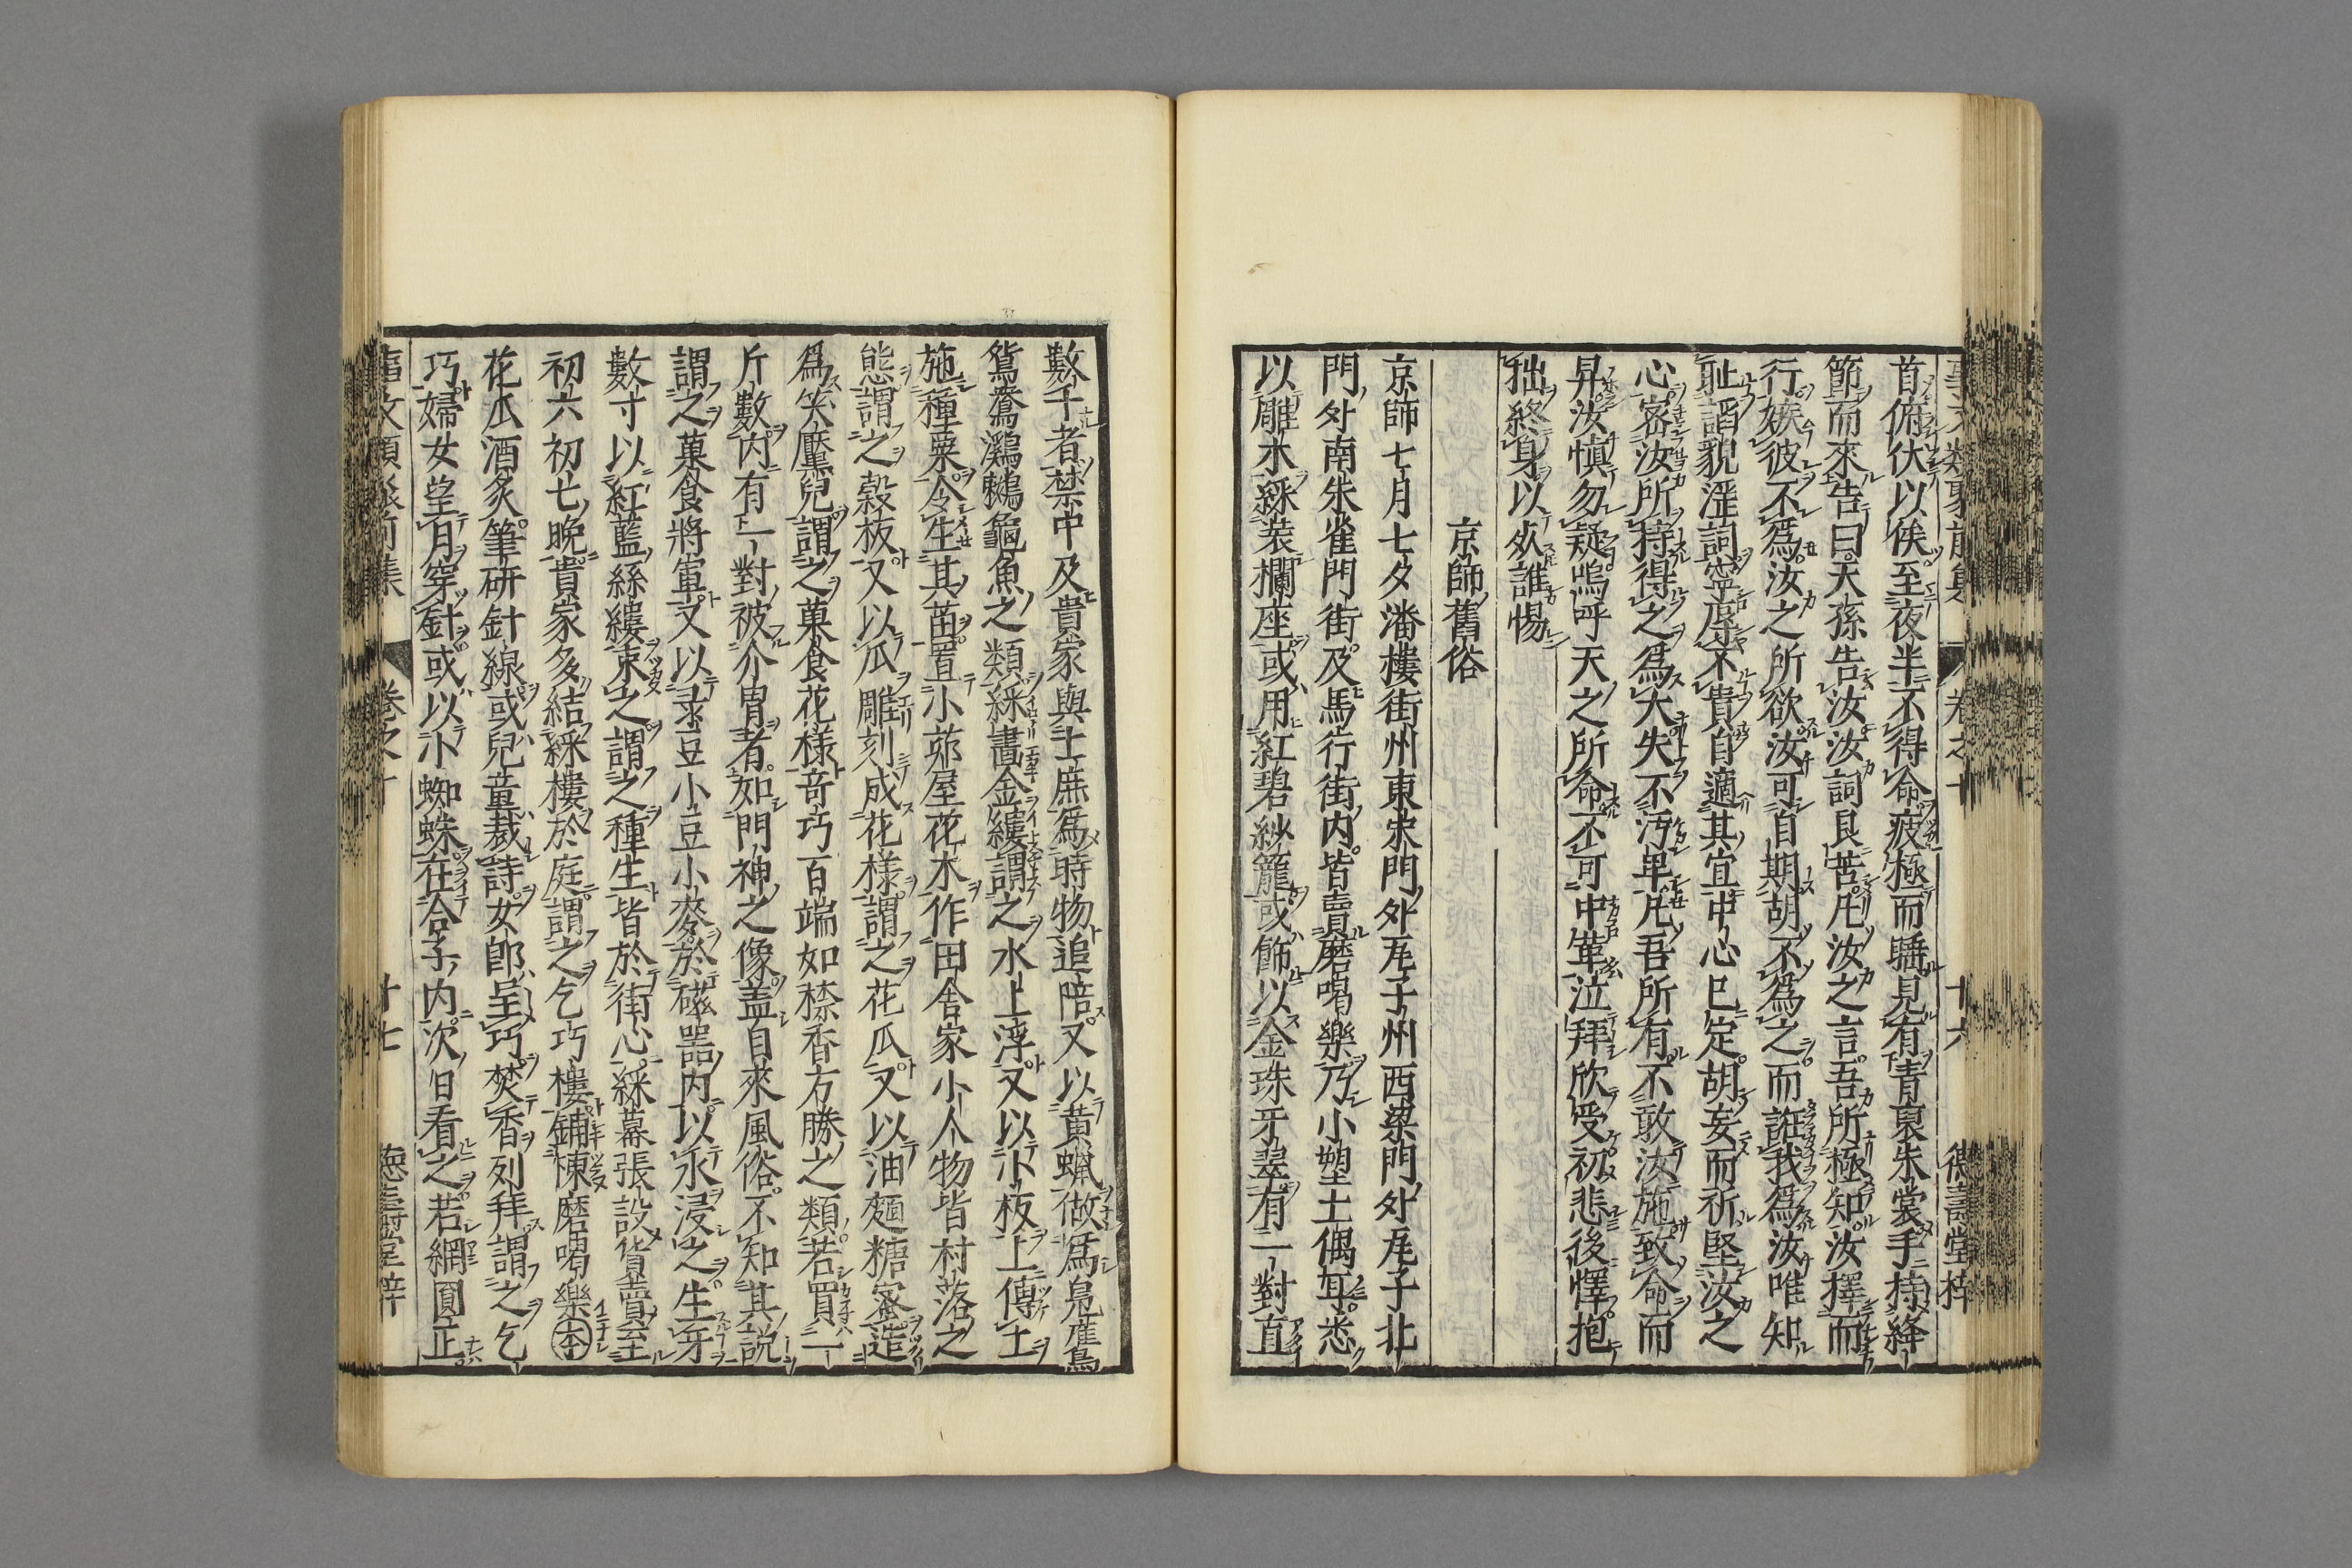 事文類聚前集 卷之十 十六 德壽堂梓
首俯伏以俟至夜半不得命疲極而睡見有青裏朱裳手持絳
節而來告曰天孫告汝汝詞良苦凡汝之言吾所極知汝擇而
行嫉彼不爲汝之所欲汝可自期胡不爲之而誑我爲汝唯知
耻謟貌淫詞寧辱不貴自適其宜中心已定胡妄而祈堅汝之
心密汝所持得之爲大失不汚卑凡吾所有不敢汝施致命而
昇汝慎勿疑嗚呼天之所命不可中革泣拜欣受初悲後懌抱
拙終身以死誰惕
京師舊俗
京師七月七夕潘樓街州東宋門外瓦子州西梁門外瓦子北
門外南朱雀門街及馬行街内皆賣磨喝樂乃小塑土偶耳悉
以雕木綵装欄座或用紅碧紗籠或飾以金珠牙翠有一對直
數千者禁中及貴家與士庶爲時物追陪又以黄蝋做爲鳧鴈
鴛鴦鸂鶒龜魚之類綵畫金縷謂之水上浮又以小板上傅土
施種粟令生其苗置小茆屋花木作田舍家小人物皆村落之
態謂之穀板又以瓜雕刻成花様謂之花瓜又以油麺糖蜜造
爲笑靨兒謂之菓食花様竒巧百端如捺香方勝之類若買一
斤數内有一對被介胄者如門神之像盖自來風俗不知其説
謂之菓食將軍又以菉豆小豆小麥於磁噐内以水浸之生牙
數寸以紅藍絲縷束之謂之種生皆於街心綵幕張設貨賣至
初六初七晩貴家多結綵樓於庭謂之乞巧樓鋪陳磨喝樂本
花瓜酒炙筆研針線或兒童裁詩女郎呈巧焚香列拜謂之乞
巧婦女望月穿針或以小蜘蛛在合子内次日看之若網圓正
事文類聚前集 卷之十 十七 德壽堂梓